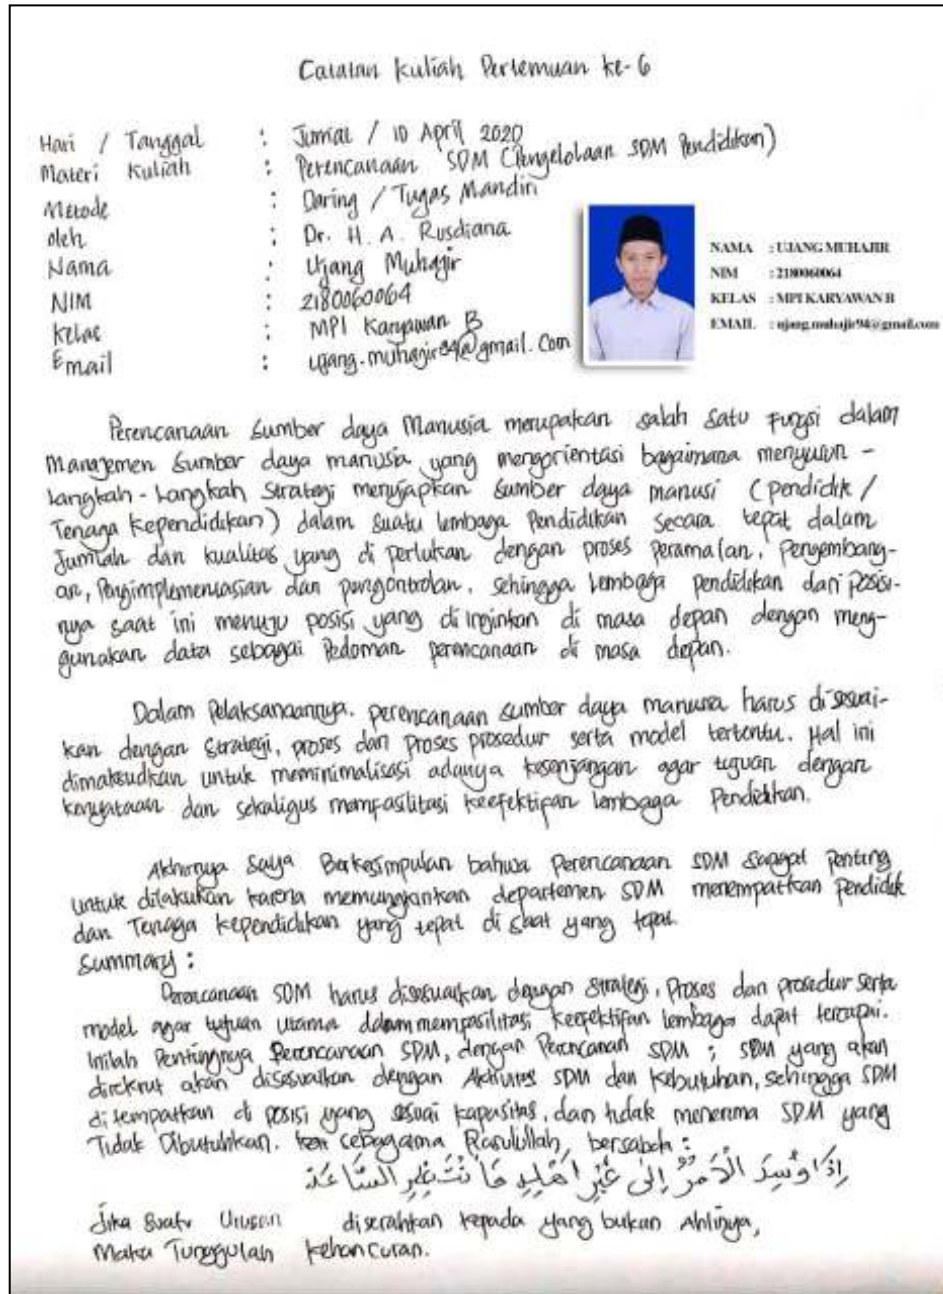 Catatan Kuliah Pertemuan ke-6
Hari / Tanggal : Jumat / 10 April 2020
Materi Kuliah : Perencanaan SDM (Pengelolaan SDM Pendidikan)
Metode : Daring / Tugas Mandiri
Oleh : Dr. H. A. Rusdiana
Nama : Ujang Muhajir
NIM : 2180060064
Kelas : MPI Karyawan B
Email : ujang.muhajir94@gmail.com
NAMA : UJANG MUHAJIR
NIM : 2180060064
KELAS : MPI KARYAWAN B
EMAIL : ujang.muhajir94@gmail.com
Perencanaan Sumber daya Manusia merupakan salah satu fungsi dalam
Manajemen Sumber daya manusia yang mengorientasi bagaimana menyusun -
langkah - Langkah Strategi menyiapkan sumber daya manusi (Pendidik /
Tenaga Kependidikan) dalam suatu lembaga Pendidikan secara tepat dalam
Jumlah dan kualitas yang di perlukan dengan proses peramalan, Pengembang-
an, Pengimplementasian dan pengontrolan, sehingga Lembaga pendidikan dari posisi-
nya saat ini menuju posisi yang di inginkan di masa depan dengan meng-
gunakan data sebagai Pedoman perencanaan di masa depan.
Dalam Pelaksanaannya. perencanaan sumber daya manusia harus di sesuai-
kan dengan strategi, proses dan Proses prosedur serta model tertentu. Hal ini
dimaksudkan untuk meminimalisasi adanya kesenjangan agar tujuan dengan
kenyataan dan sekaligus mempasilitasi keefektipan lembaga Pendidikan.
Akhirnya Saya Berkesimpulan bahwa Perencanaan SDM Sangat Penting
untuk dilakukan karena memungkinkan departemen SDM menempatkan Pendidik
dan Tenaga kependidikan yang tepat di Saat yang tepat.
Summary :
Perencanaan SDM harus disesuaikan dengan Strategi, Proses dan prosedur serta
model agar tujuan utama dalam mempasilitasi keefektifan lembaga dapat tercapai.
Inilah Pentingnya Perencanaan SDM, dengan Perencanan SDM ; SDM yang akan
direkrut akan disesuaikan dengan Aktivitas SDM dan kebutuhan, sehingga SDM
di tempatkan di posisi yang sesuai kapasitas, dan tidak menerima SDM yang
Tidak Dibutuhkan. sebagaimana Rasulullah, bersabda :
إذا وُسِدَ الْأَمْرُ إِلَى غَيْرِ أَهْلِهِ فَانْتَظِرِ السَّاعَةَ
Jika Suatu Urusan diserahkan kepada yang bukan Ahlinya,
Maka Tunggulah kehancuran.